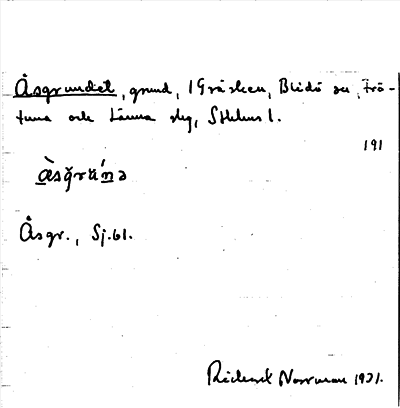 Åsgrundet, grund, i Gräsken, Blidö sn, Frö-
tuna och Länna slg, Sthlms l.
191
àsgrún̄ə
Åsgr., Sj.bl.
Rickard Norrman 1931.